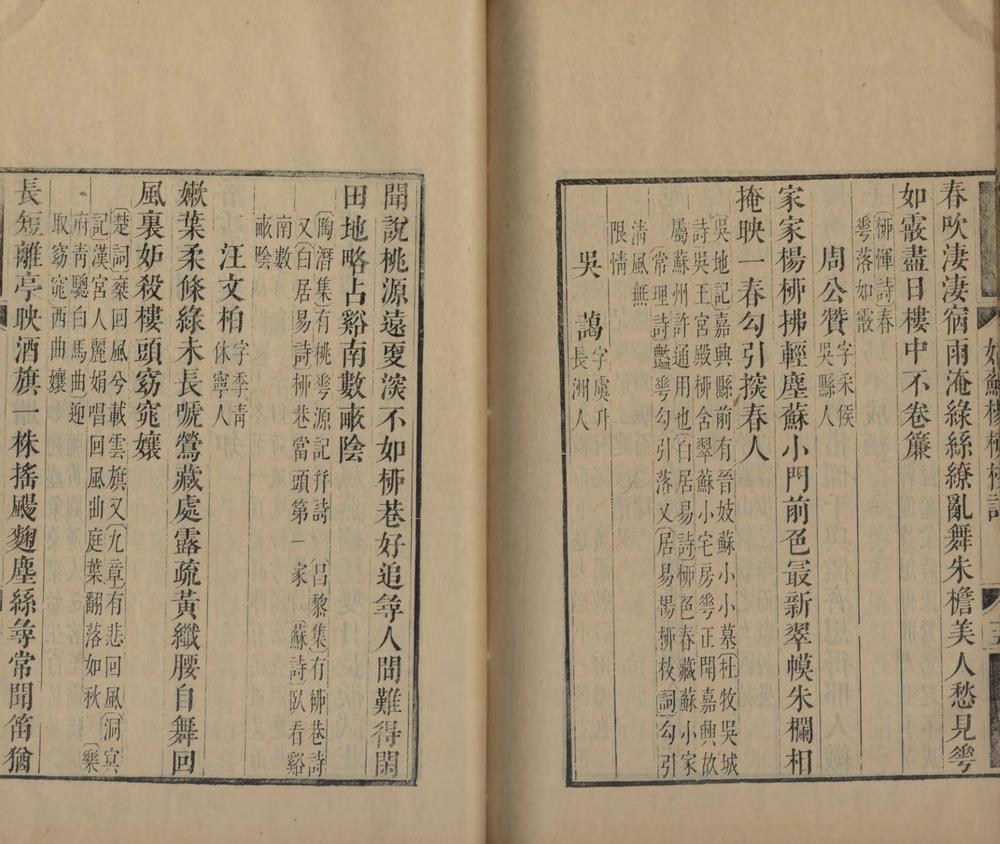 春吹淒淒宿雨淹綠絲繚亂舞朱檐美人愁見蕚
如霰盡日樓中不卷簾
柳惲詩春
蕚落如霰
周公贊
字采俟
吳縣人
家家楊桺拂輕塵蘇小門前色最新翠幙朱欄相
掩映一春勾引㨆春人
吳地記嘉興縣前有晉妓蘇小小墓杜牧吳城
詩吳王宮殿桺含翠蘇小宅房蕚正開嘉興故
屬蘇州許通用也白居易詩桺色春藏蘇小家
常理詩豔蕚勾引落又居易楊桺枝詞勾引
清風無
限情
吳藹
字虞升
長洲人
聞說桃源遠更深不如桺巷好追尋人間難得閑
田地略占谿南數畝陰
陶潛集有桃蕚源記并詩昌黎集有桺巷詩
又白居易詩桺巷當頭第一家蘇詩臥看谿
南數
畝陰
汪文柏
字季青
休寧人
嫰葉柔條綠未長嗁鶯藏處露疏黃纖腰自舞回
風裏妒殺樓頭窈窕孃
楚詞乘回風兮載雲旗又九章有悲回風洞冥
記漢宮人麗娟唱回風曲庭葉翻落如秋樂
府青驄白馬曲迎
取窈窕西曲孃
長短離亭映酒旗一株搖颺麴塵絲尋常聞笛猶